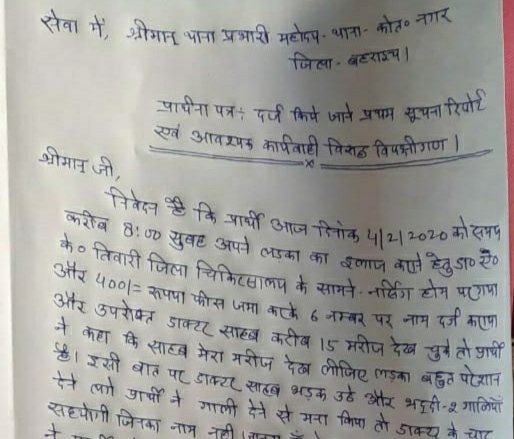 सेवा में, श्रीमान् थाना प्रभारी महोदय- थाना- कोत० नगर
जिला- बहराइच।
प्रार्थना पत्र:- दर्ज किये जाने प्रथम सूचना रिपोर्ट
एवं आवश्यक कार्यवाही विरुद्ध विपक्षीगण।
श्रीमान् जी,
निवेदन है कि प्रार्थी आज दिनांक 4/2/2020 को समय
करीब 8:00 सुबह अपने लड़का का इलाज कराने हेतु डा० ऐ०
के० तिवारी जिला चिकित्सालय के सामने- नर्सिंग होम पर गया
और 400/= रूपया फीस जमा करके 6 नम्बर पर नाम दर्ज कराया
और उपरोक्त डाक्टर साहब करीब 15 मरीज देख चुके तो प्रार्थी
ने कहा कि साहब मेरा मरीज देख लीजिए लड़का बहुत परेशान
है। इसी बात पर डाक्टर साहब भड़क उठे और भद्दी-२ गालियाँ
देने लगे प्रार्थी ने गाली देने से मना किया तो डाक्टर के चार
सहयोगी जिनका नाम नही